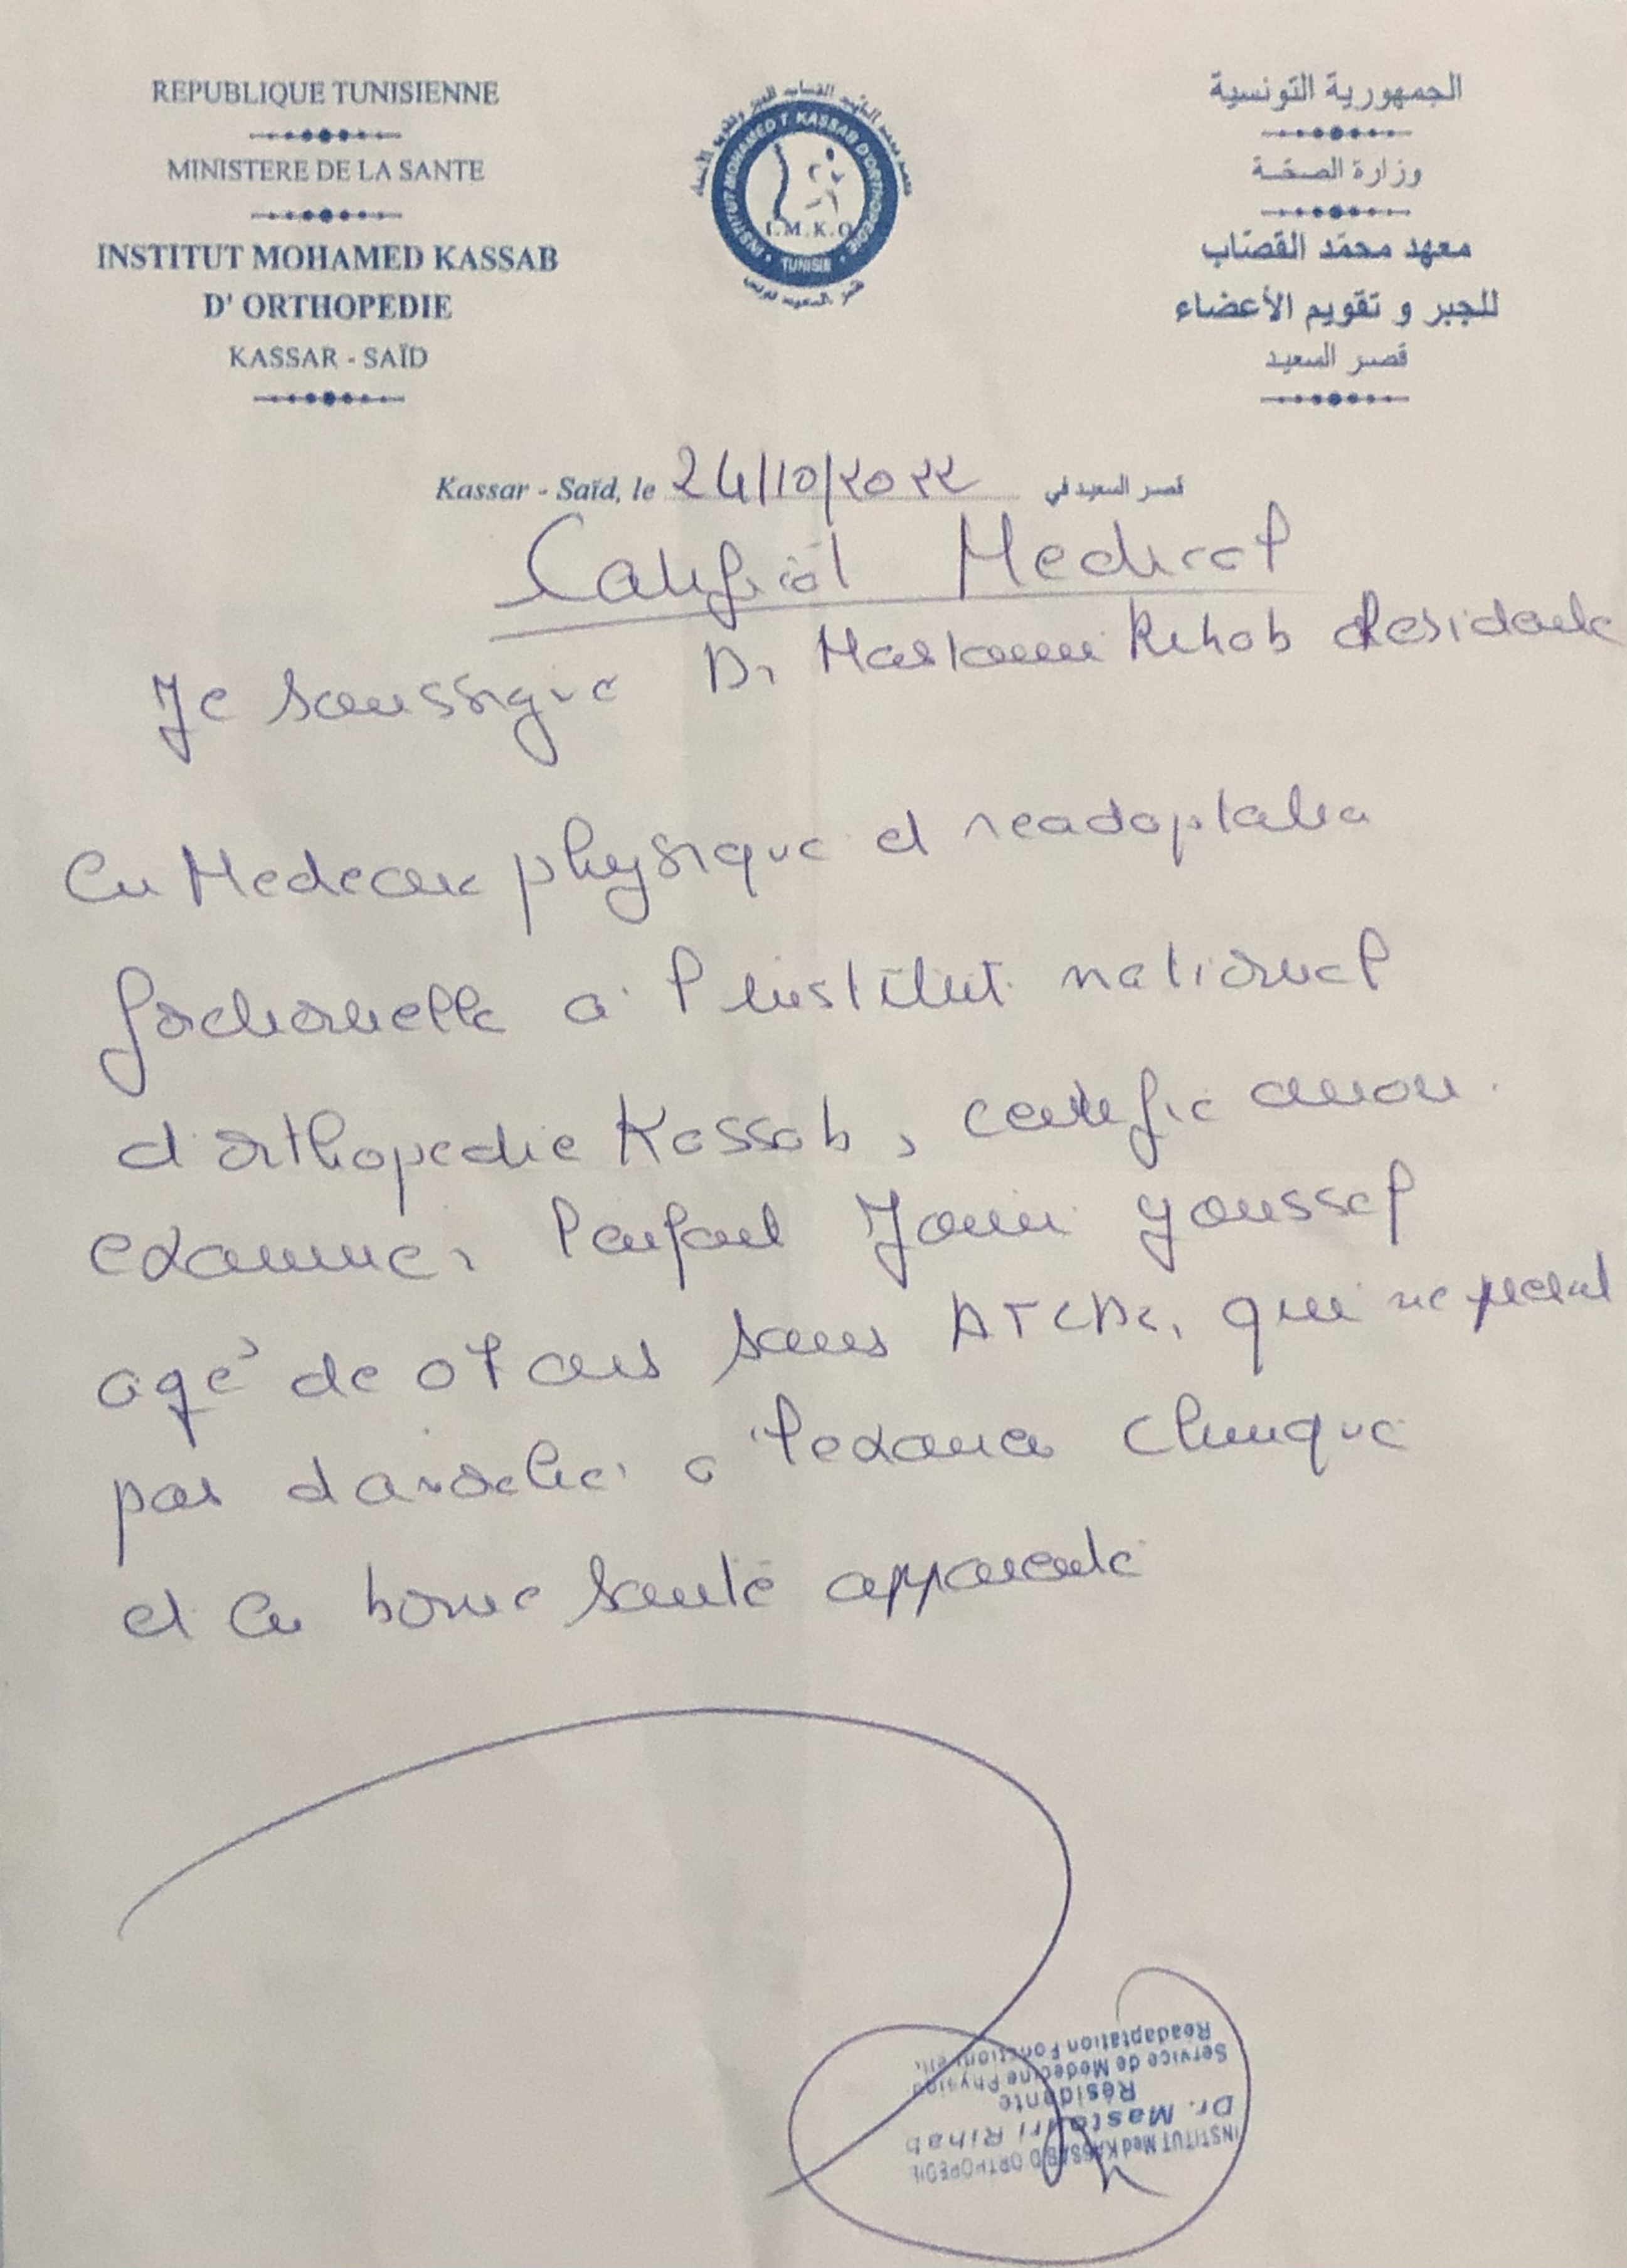 REPUBLIQUE TUNISIENNE
MINISTERE DE LA SANTE
INSTITUT MOHAMED KASSAB
D' ORTHOPEDIE
KASSAR - SAÏD
INSTITUT MOHAMED T. KASSAB D'ORTHOPEDIE
I.M.K.O
TUNISIE
قصر السعيد تونس
الجمهورية التونسية
وزارة الصحة
معهد محمد القصاب
للجبر و تقويم الأعضاء
قصر السعيد
Kassar - Saïd, le 24/10/2022 قصر السعيد في
Certificat Medical
Je soussigne Dr Mastouri Rihab Residante
en Medecine physique et readaptation
fonctionnelle a l'institut national
d'orthopedie Kassab, certifie avoir
examiner l'enfant Youssef
agé de 07 ans sans ATCDs, qui ne present
pas d'anomalie a l'examen clinique
et en bonne santé apparente
INSTITUT Med KASSAB D'ORTHOPEDIE
Dr. Mastouri Rihab
Résidante
Service de Medecine Physique
Réadaptation Fonctionnelle